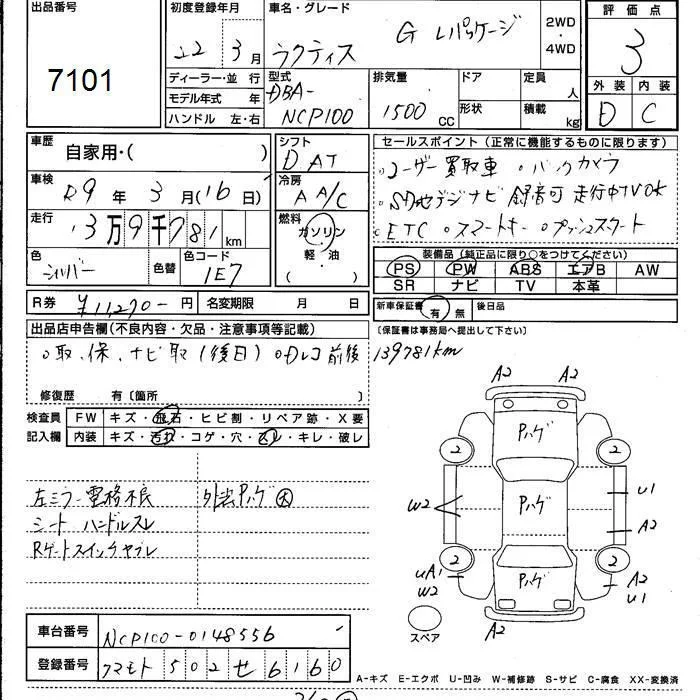 出品番号
7101
初度登録年月
22年3月
車名・グレード
ラクティス G Lパッケージ
2WD・4WD
評価点
3
外装 内装
D C
ディーラー・並行
モデル年式 年
ハンドル 左・右
型式
DBA-
NCP100
排気量
1500 cc
ドア
形状
定員 人
積載 kg
車歴
自家用・( )
車検
R9年3月(16日)
走行
13万9千781km
色
シルバー
色替
色コード
1E7
シフト
D AT
冷房
A A/C
燃料
ガソリン・軽油・( )
セールスポイント(正常に機能するものに限ります)
。ユーザー買取車 。バックカメラ
。SD地デジナビ 録音可 走行中TV OK
。ETC 。スマートキー 。プッシュスタート
装備品(純正品に限り○をつけてください)
PS PW ABS エアB AW
SR ナビ TV 本革
R券 ¥11,270-円 名変期限 月 日
新車保証書 有 無 後日品
(保証書は事務局へ提出して下さい)
出品店申告欄(不良内容・欠品・注意事項等記載)
。取、保、ナビ取(後日) 。Dレコ前後
139781km
修復歴 有〔箇所 〕
検査員記入欄
FW キズ・飛石・ヒビ割・リペア跡・X要
内装 キズ・汚れ・コゲ・穴・スレ・キレ・破レ
左ミラー電格不良 外装Pハゲ大
シート ハンドルスレ
Rゲートスイッチヤブレ
A2 A2
Pハゲ
2 2
W2
Pハゲ
U1
A2
2 2
UA1
W2
Pハゲ
A2
U1
A2
スペア
車台番号 NCP100-0148556
登録番号 クマモト 502 せ 6160
A-キズ E-エクボ U-凹み W-補修跡 S-サビ C-腐食 XX-交換済